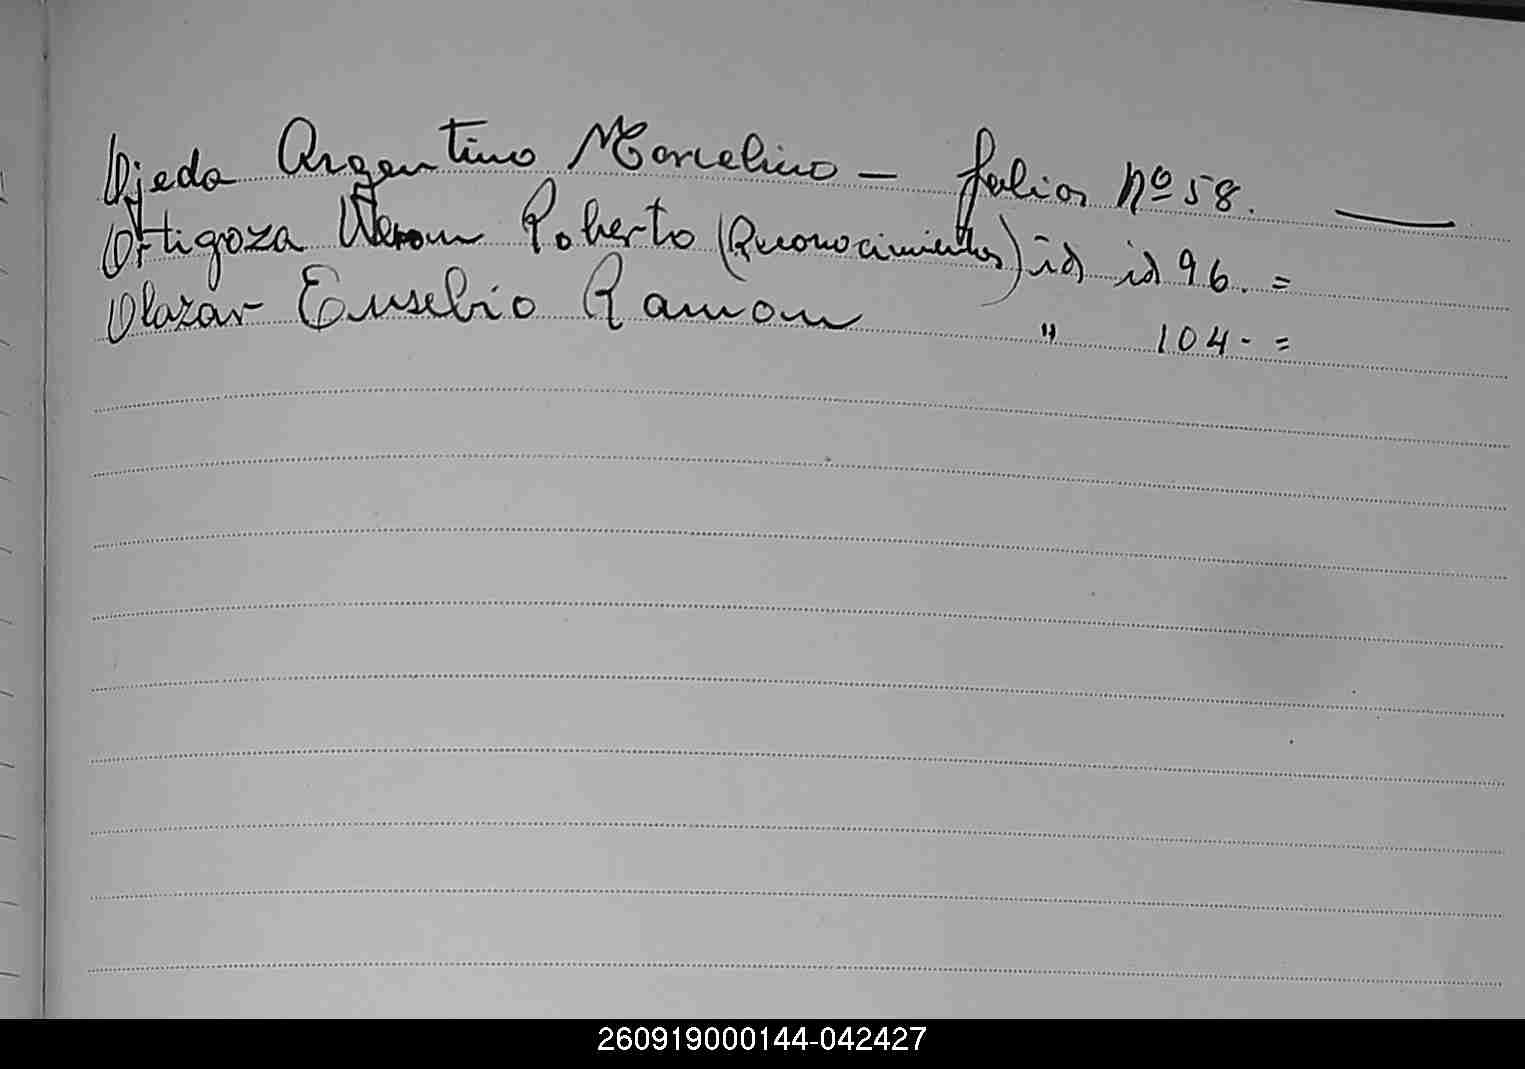 Ojeda Argentino Marcelino — folios nº 58. —
Ortigoza Roberto (Reconocimientos) id id 96. =
Olazar Eusebio Ramon " 104. =
260919000144-042427